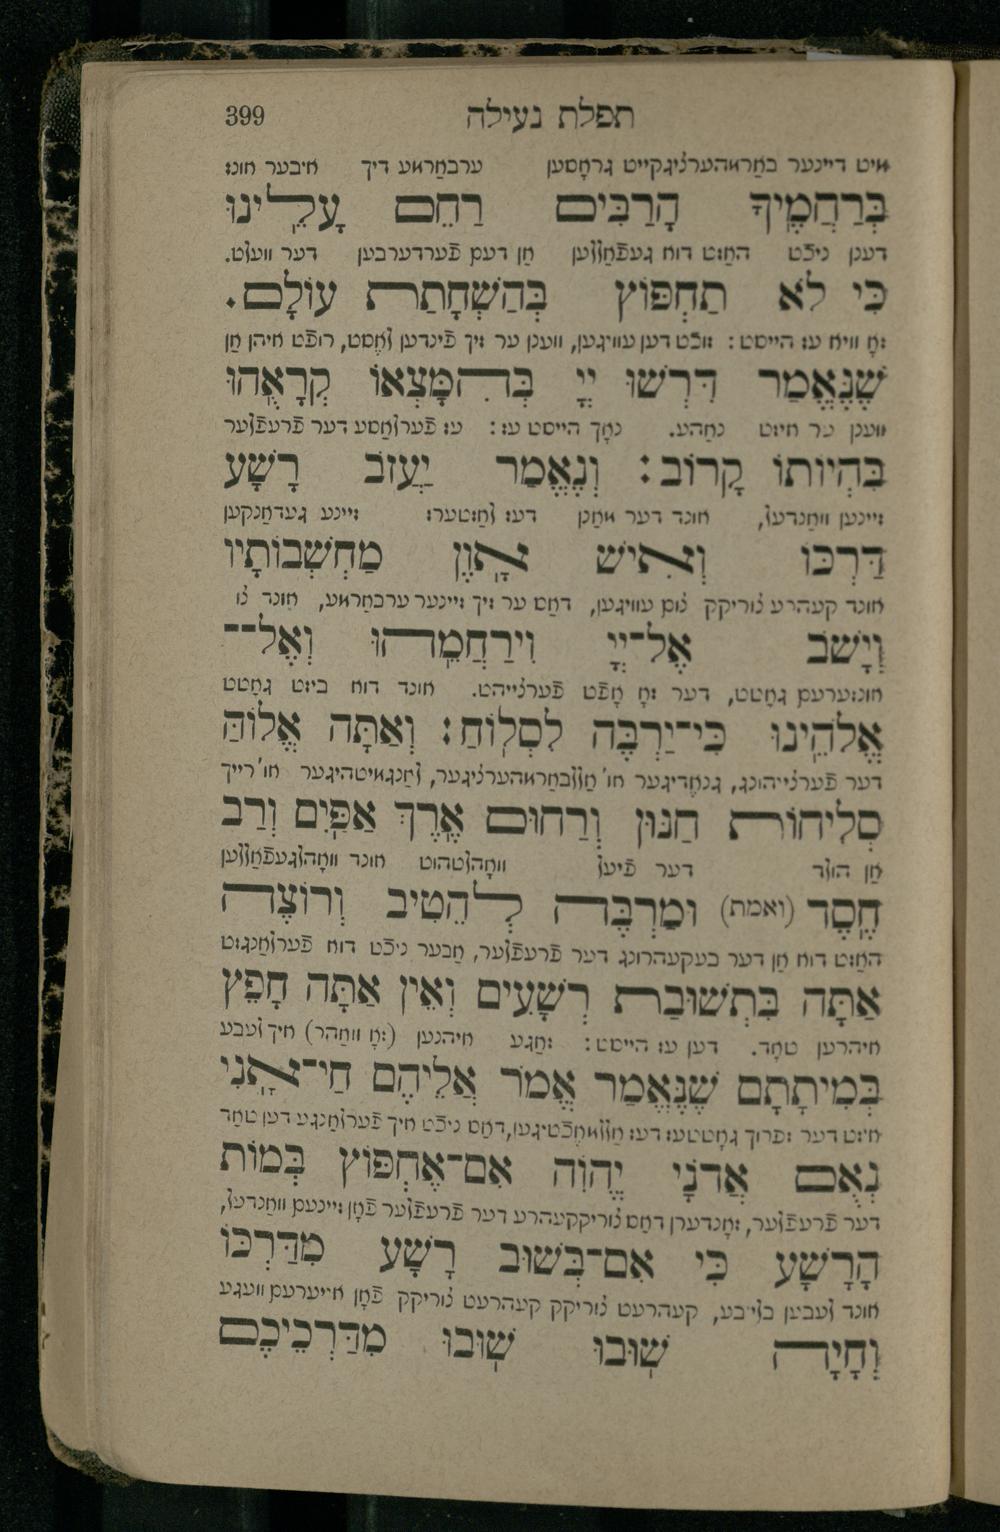 תפלת נעילה 399
מיט דיינער באַרמהערניגקייט גראָסען ערבאַרמע דיך איבער אונז
בְּרַחֲמֶיךָ הָרַבִּים רַחֵם עָלֵינוּ
דען ניכט האַזט דוא געפֿאַללען אַן דעם פֿערדערבען דער וועלט.
כִּי לֹא תַחְפּוֹץ בְּהַשְׁחָתַת עוֹלָם.
זאָ וויא עז הייסט: זוכט דען עוויגען, ווען ער זיך פֿינדען לאֶסט, רופֿט איהן אַן
שֶׁנֶּאֱמַר דִּרְשׁוּ יְיָ בְּהִמָּצְאוֹ קְרָאֻהוּ
ווען ער איזט נאַהע. נאָך הייסט עז: עז פֿערלאַסע דער פֿרעפֿלער
בִּהְיוֹתוֹ קָרוֹב: וְנֶאֱמַר יַעֲזֹב רָשָׁע
זיינען וואַנדעל, אונד דער מאַנן דעז לאַזטערז זיינע געדאַנקען
דַּרְכּוֹ וְאִישׁ אָוֶן מַחְשְׁבוֹתָיו
אונד קעהרע צוריקק צום עוויגען, דאַס ער זיך זיינער ערבאַרמע, אונד צו
וְיָשֹׁב אֶל־יְיָ וִירַחֲמֵהוּ וְאֶל־
אונזערעם גאָטט, דער זאָ אָפֿט פֿערצייהט. אונד דוא ביזט גאָטט
אֱלֹהֵינוּ כִּי־יַרְבֶּה לִסְלוֹחַ: וְאַתָּה אֱלוֹהַּ
דער פֿערצייהונג, גנאֶדיגער או' אַללבאַרמהערציגער, לאַנגמיטהיגער או' רייך
סְלִיחוֹת חַנּוּן וְרַחוּם אֶרֶךְ אַפַּיִם וְרַב
אַן הולד דער פֿיעל וואָהלטהוט אונד וואָהלגעפֿאַללען
חֶסֶד (ואמת) וּמַרְבֶּה לְהֵטִיב וְרוֹצֶה
האַזט דוא אַן דער בעקעהרונג דער פֿרעפֿלער, אַבער ניכט דוא פֿערלאַנגזט
אַתָּה בִּתְשׁוּבַת רְשָׁעִים וְאֵין אַתָּה חָפֵץ
איהרען טאָד. דען עז הייסט: זאַגע איהנען (זאָ וואַהר) איך לעבע
בְּמִיתָתָם שֶׁנֶּאֱמַר אֱמֹר אֲלֵיהֶם חַי־אָנִי
איזט דער זפרוך גאָטטעז דעז אַללמאֶכטיגען, דאַס ניכט איך פֿערלאַנגע דען טאָד
נְאֻם אֲדֹנָי יֱהֹוִה אִם־אֶחְפּוֹץ בְּמוֹת
דער פֿרעפֿלער, זאָנדערן דאַס צוריקקעהרע דער פֿרעפֿלער פֿאָן זיינעם וואַנדעל,
הָרָשָׁע כִּי אִם־בְּשׁוּב רָשָׁע מִדַּרְכּוֹ
אונד לעבען בלייבע, קעהרעט צוריקק קעהרעט צוריקק פֿאָן אייערעם וועגע
וְחָיָה שׁוּבוּ שׁוּבוּ מִדַּרְכֵיכֶם